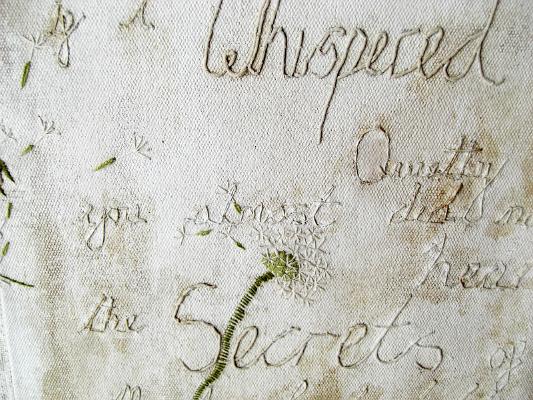 If I Whispered
Quietly
you almost did
hear
the Secrets of